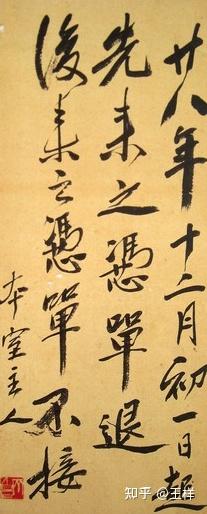 廿八年十二月初一日起
先来之憑單退
後来之憑單不接
本室主人
知乎 @王样